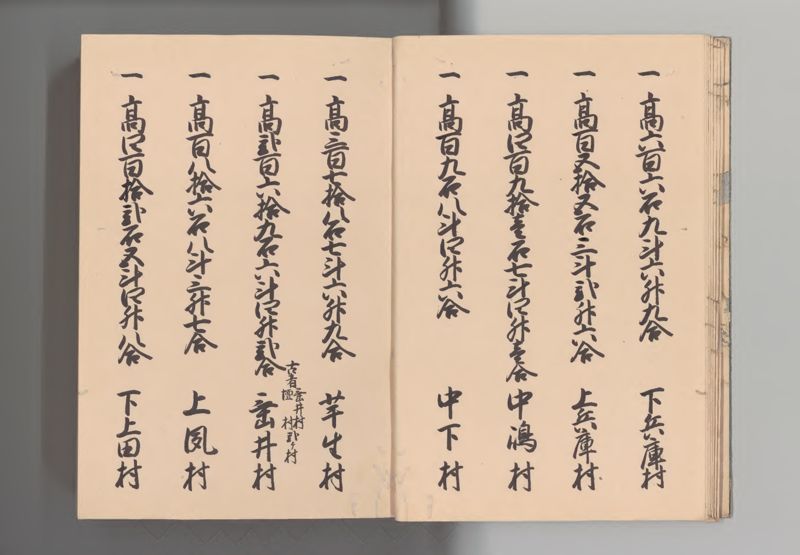 一 高六百六石九斗六升九合 下兵庫村
一 高百五拾五石三斗弐升六合 上兵庫村
一 高四百九拾壱石七斗四升壱合 中鴻村
一 高百九石八斗四升六合 中下村
一 高三百七拾八石七斗六升九合 芋生村
一 高弐百六拾九石六斗四升弐合 垂井村
古者垂井村
村弐ヶ村
一 高百八拾六石八斗三升七合 上夙村
一 高四百拾弐石五斗四升八合 下上田村